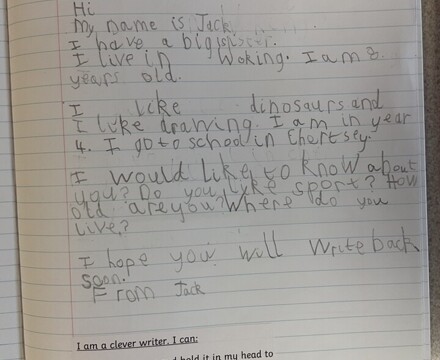 Hi
My name is Jack.
I have a big sister.
I live in Woking. I am 8
years old.
I like dinosaurs and
I like drawing. I am in year
4. I go to school in Chertsey.
I would like to know about
you? Do you like sport? How
old are you? Where do you
live?
I hope you will write back
soon.
From Jack
I am a clever writer. I can:
hold it in my head to